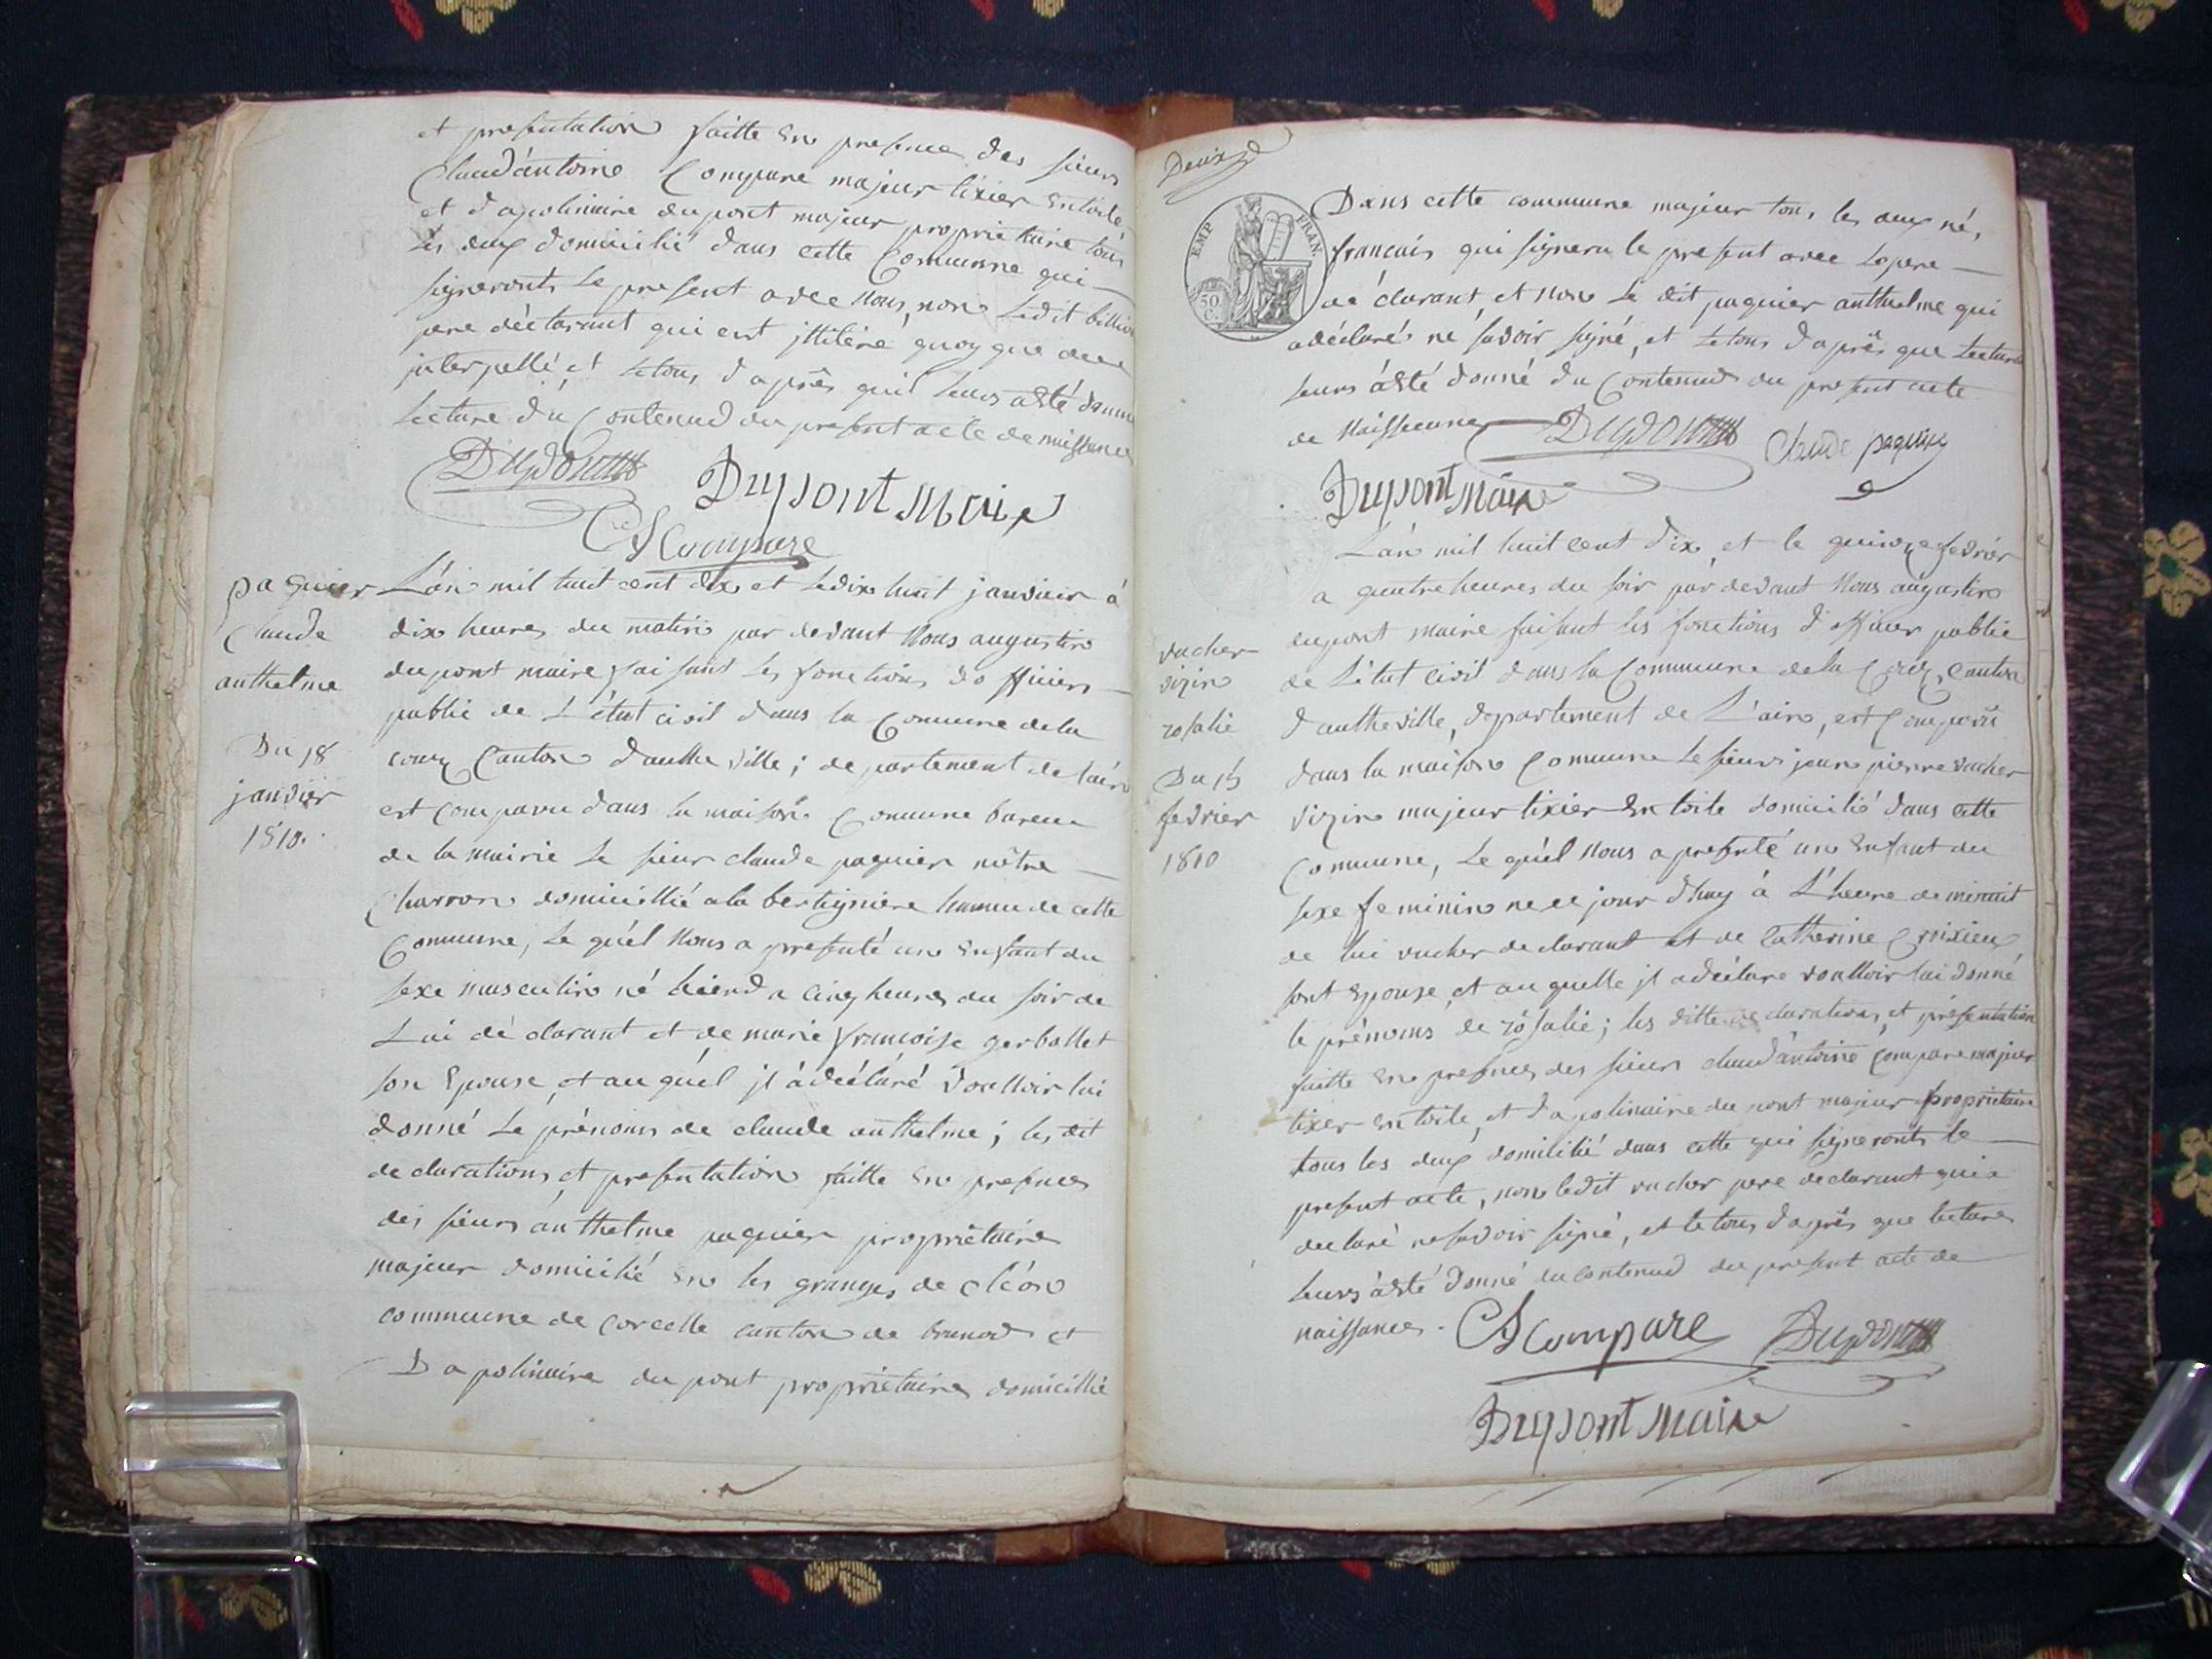 et presentation faitte En presence des sieurs
Claud'antoine Compare majeur tixier En toile,
et d'apolinaire dupont majeur proprietaire tous
Les deux domicilié dans cette Commune qui
signeronts Le present avec Nous, non Ledit
pere déclarant qui est jllitéré quoy que de
jnterpellé et Letous d'aprês quil Leurs aÈté donné
Lecture du Contenud du present acte de naissance
Dupont
Dupont Maire
CA Compare
paquier
Claude
anthelme
Du 18
janvier
1810.
L'an mil huit cent dix et Le dix huit janvier à
dix heures du matin par devant Nous augustin
dupont maire faisant Les fonctions d'officier
public de L'état civil dans la Comune dela
couz Canton d'anthe ville; departement de l'ain
est comparu dans la maison Comune bureau
de la mairie Le sieur claude paquier mêtre
Charron domicillié ala bertigniere hameu de cette
Comune, Le quél Nous a presenté un Enfant du
sexe masculin né hierd a cinq heures du soir de
Lui déclarant et de marie francoise gerbollet
son Epouse, et au quél jl à déclaré voulloir lui
donné Le prénoms de claude anthelme; les dit
declarations et presentation faitte En presences
des sieurs anthelme paquier propriêtaire
majeur domicilié En les granges de cléon
commune de corcelle canton de brenod et
D'apolinaire dupont propriétaire domicillié
Deux
EMP FRAN.
50 C.
Dans cette commune majeur tous les deux nés
francais qui signera le present avec Lepere
déclarant, et Non Le dit paquier anthelme qui
a déclaré ne savoir signé, et Letous d'aprês que Lecture
Leurs àÈté donné du Contenud du present acte
de Naissance
Dupont
Claude paquier
Dupont Maire
vucher
vizin
rosalie
Du 15
fevrier
1810
L'an mil huit cent dix, et le quinze fevrier
a quatre heures du soir par devant Nous augustin
dupont maire faisant les fonctions d'officier public
de L'état civil dans la Commune dela Couz, Canton
d'antheville, departement de L'ain, est Comparu
dans la maison Comune Le sieur jean pierre vucher
vizin majeur tixier En toile domicilié dans cette
Commune, Le quél Nous a presenté un Enfant du
sexe feminin ne ce jour d'huy à L'heure de minuit
de lui vucher declarant et de Catherine
sont Epouse, et au quelle jl a déclare voulloir lui donné
le prénoms de rosalie; les ditte declaration, et présentation
faitte En presences des sieurs claud'antoine Compare majeur
tixer En toile, et d'apolinaire du pont majeur proprietaire
tous les deux domilié dans cette qui signeronts le
present acte, non ledit vucher pere declarant qui a
declaré ne savoir signé, et letous d'aprês que lecture
Leurs àÈté donné du Contenud du present acte de
naissances.
CA Compare
Dupont
Dupont Maire